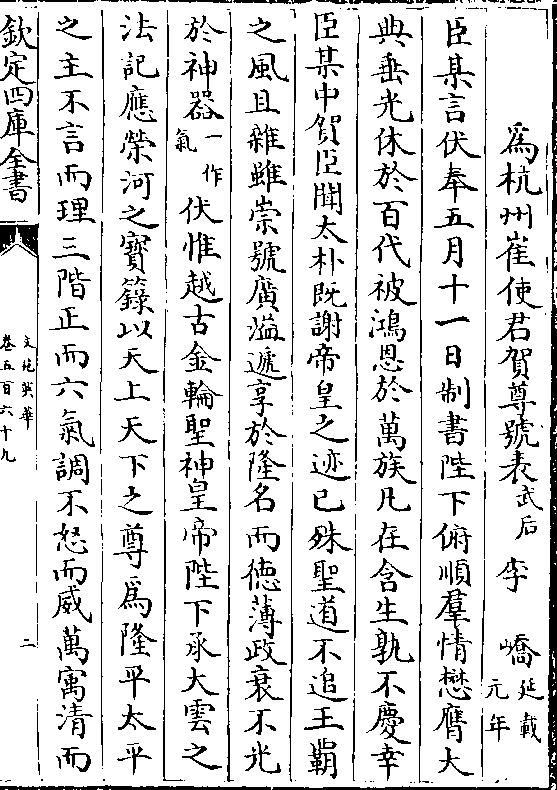 爲杭州崔使君賀尊號表武后 李嶠延載元年
臣某言伏奉五月十一日制書陛下俯順羣情懋膺大
典垂光休於百代被鴻恩於萬族凡在含生孰不慶幸
臣某中賀臣聞太朴既謝帝皇之迹已殊聖道不追王霸
之風且雜雖崇號廣溢遞享於隆名而徳薄政衰不光
於神器一作氣伏惟越古金輪聖神皇帝陛下承大雲之
法記應榮河之寳籙以天上天下之尊爲隆平太平
之主不言而理三階正而六氣調不怒而威萬寓清而
欽定四庫全書
文苑英華
卷五百六十九
二